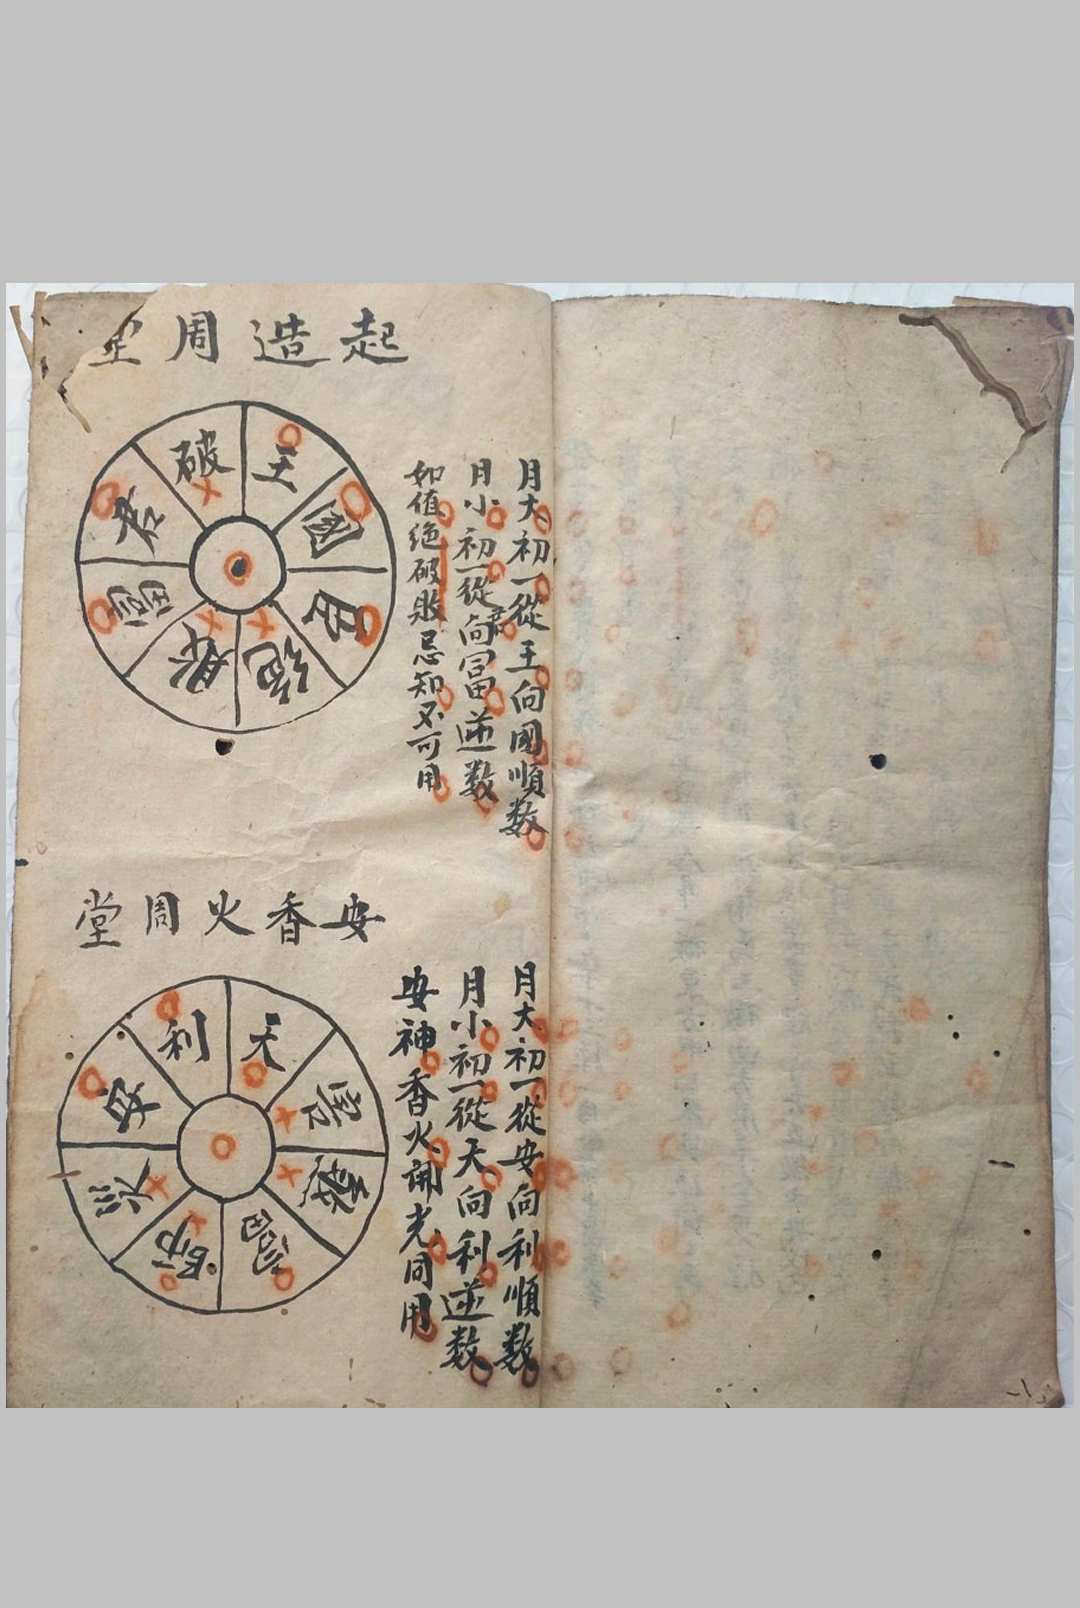 起造周堂
月大初一從王向國順数
月小初一從君向富逆数
如值絶破敗忌知不可用
王
國
臣
絶
敗
富
君
破
安香火周堂
月大初一從安向利順数
月小初一從天向利逆数
安神香火開光同用
天
害
殺
富
師
災
安
利